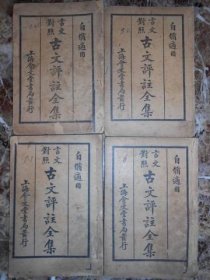 自修適用
言文對照 古文評註全集
上海會文堂書局發行
自修適用
言文對照 古文評註全集
上海會文堂書局發行
自修適用
言文對照 古文評註全集
上海會文堂書局發行
自修適用
言文對照 古文評註全集
上海會文堂書局發行